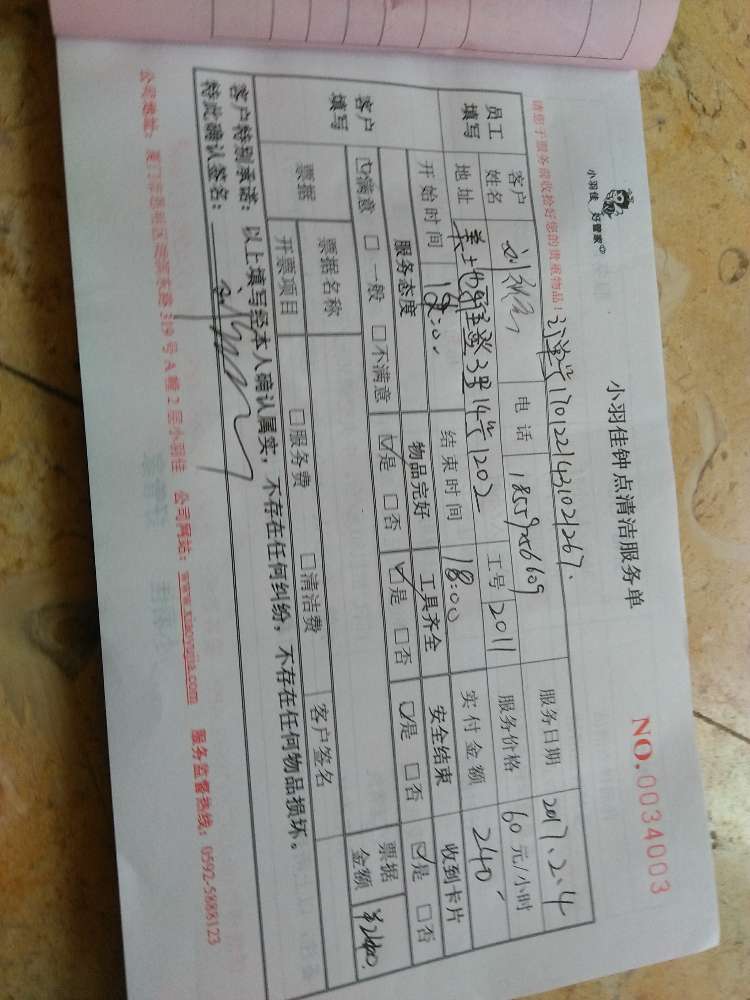 小羽佳 好管家
小羽佳钟点清洁服务单
NO.0034003
请您于服务前收拾好您的贵重物品!
员工填写 客户姓名 电话 工号 2011 服务日期 2017.2.4
服务价格 60元/小时
地址 3号14 1202
开始时间 结束时间 18:00 实付金额 240
客户填写 服务态度 物品完好 工具齐全 安全结束 收到卡片
☑满意 □一般 □不满意 ☑是 □否 ☑是 □否 ☑是 □否 ☑是 □否
票据 票据名称 票据金额 ¥240.
开票项目 □服务费 □清洁费 客户签名
客户特别承诺:以上填写经本人确认属实,不存在任何纠纷,不存在任何物品损坏。
特此确认签名:
公司地址: 319号A幢2层小羽佳 公司网站:www.xiaoyujia.com 服务监督热线:0592-5888123